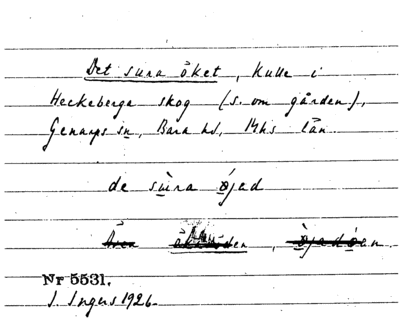 Det sura öket, Kulle i
Heckeberga skog (s. om gården),
Genarps sn, Bara hd, Mhs län.
de su̱ra ø̱jad
Nr 5531.
I. Ingers 1926.